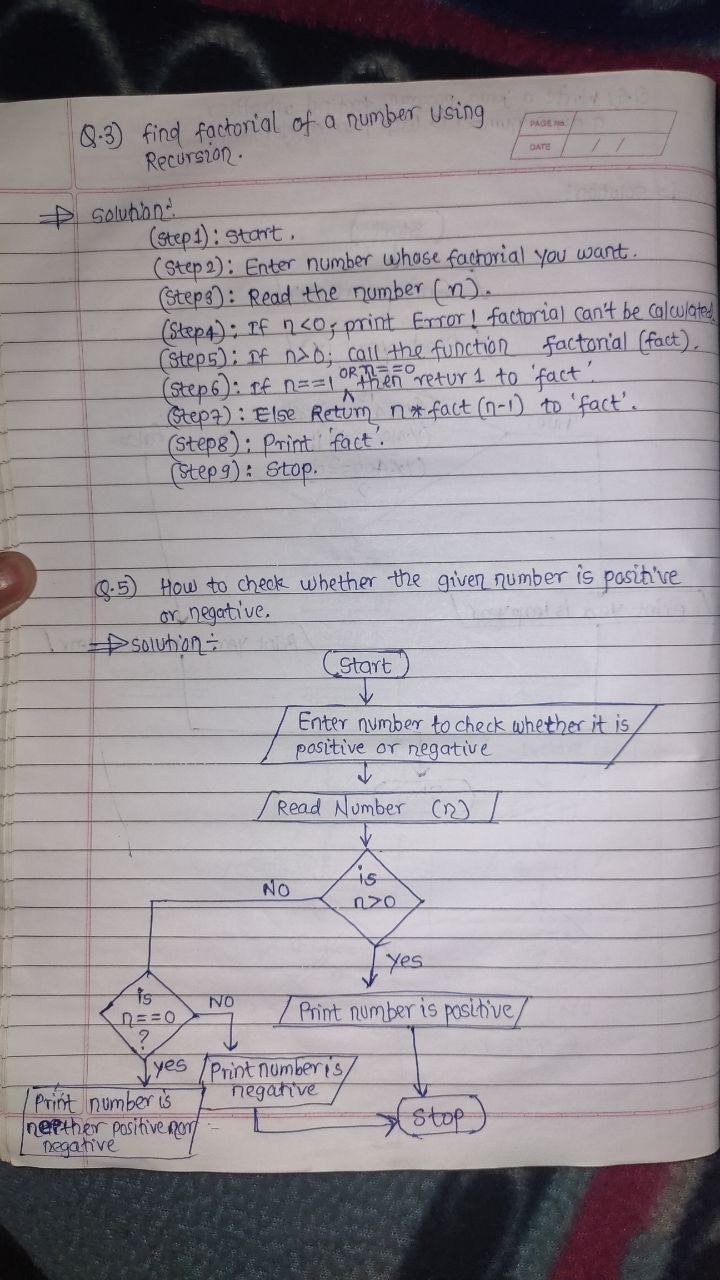 Q.3) find factorial of a number using
Recursion.
PAGE No.
DATE / /
⇒ Solution:
(Step1): Start.
(Step2): Enter number whose factorial you want.
(Step3): Read the number (n).
(Step4): If n<0; print Error! factorial can't be calculated.
(Step5): If n>0; call the function factorial (fact).
OR n==0
(Step6): If n==1 ^ then retur 1 to 'fact'.
(Step7): Else Return n*fact(n-1) to 'fact'.
(Step8): Print 'fact'.
(Step9): Stop.
Q.5) How to check whether the given number is positive
or negative.
⇒ solution÷
Start
Enter number to check whether it is
positive or negative
Read Number (n)
is
n>0
NO
Yes
is
n==0
?
NO
yes
Print number is positive
Print number is
negative
Print number is
neither positive nor
negative
Stop